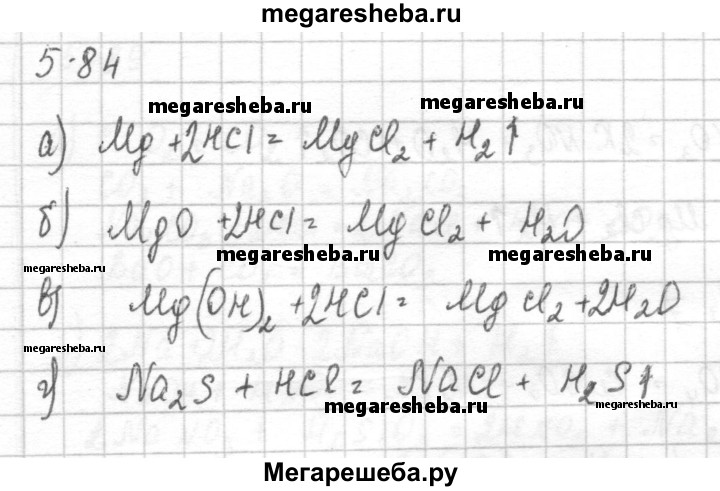 megaresheba.ru
5.84
megaresheba.ru megaresheba.ru
а) Mg + 2HCl = MgCl₂ + H₂↑
б) MgO + 2HCl = MgCl₂ + H₂O
megaresheba.ru megaresheba.ru megaresheba.ru
в) Mg(OH)₂ + 2HCl = MgCl₂ + 2H₂O
megaresheba.ru
г) Na₂S + HCl = NaCl + H₂S↑
megaresheba.ru megaresheba.ru
Мегарешеба.ру